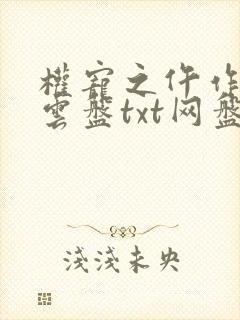 權寵之仵作
雲盤txt网盤
淺淺未央